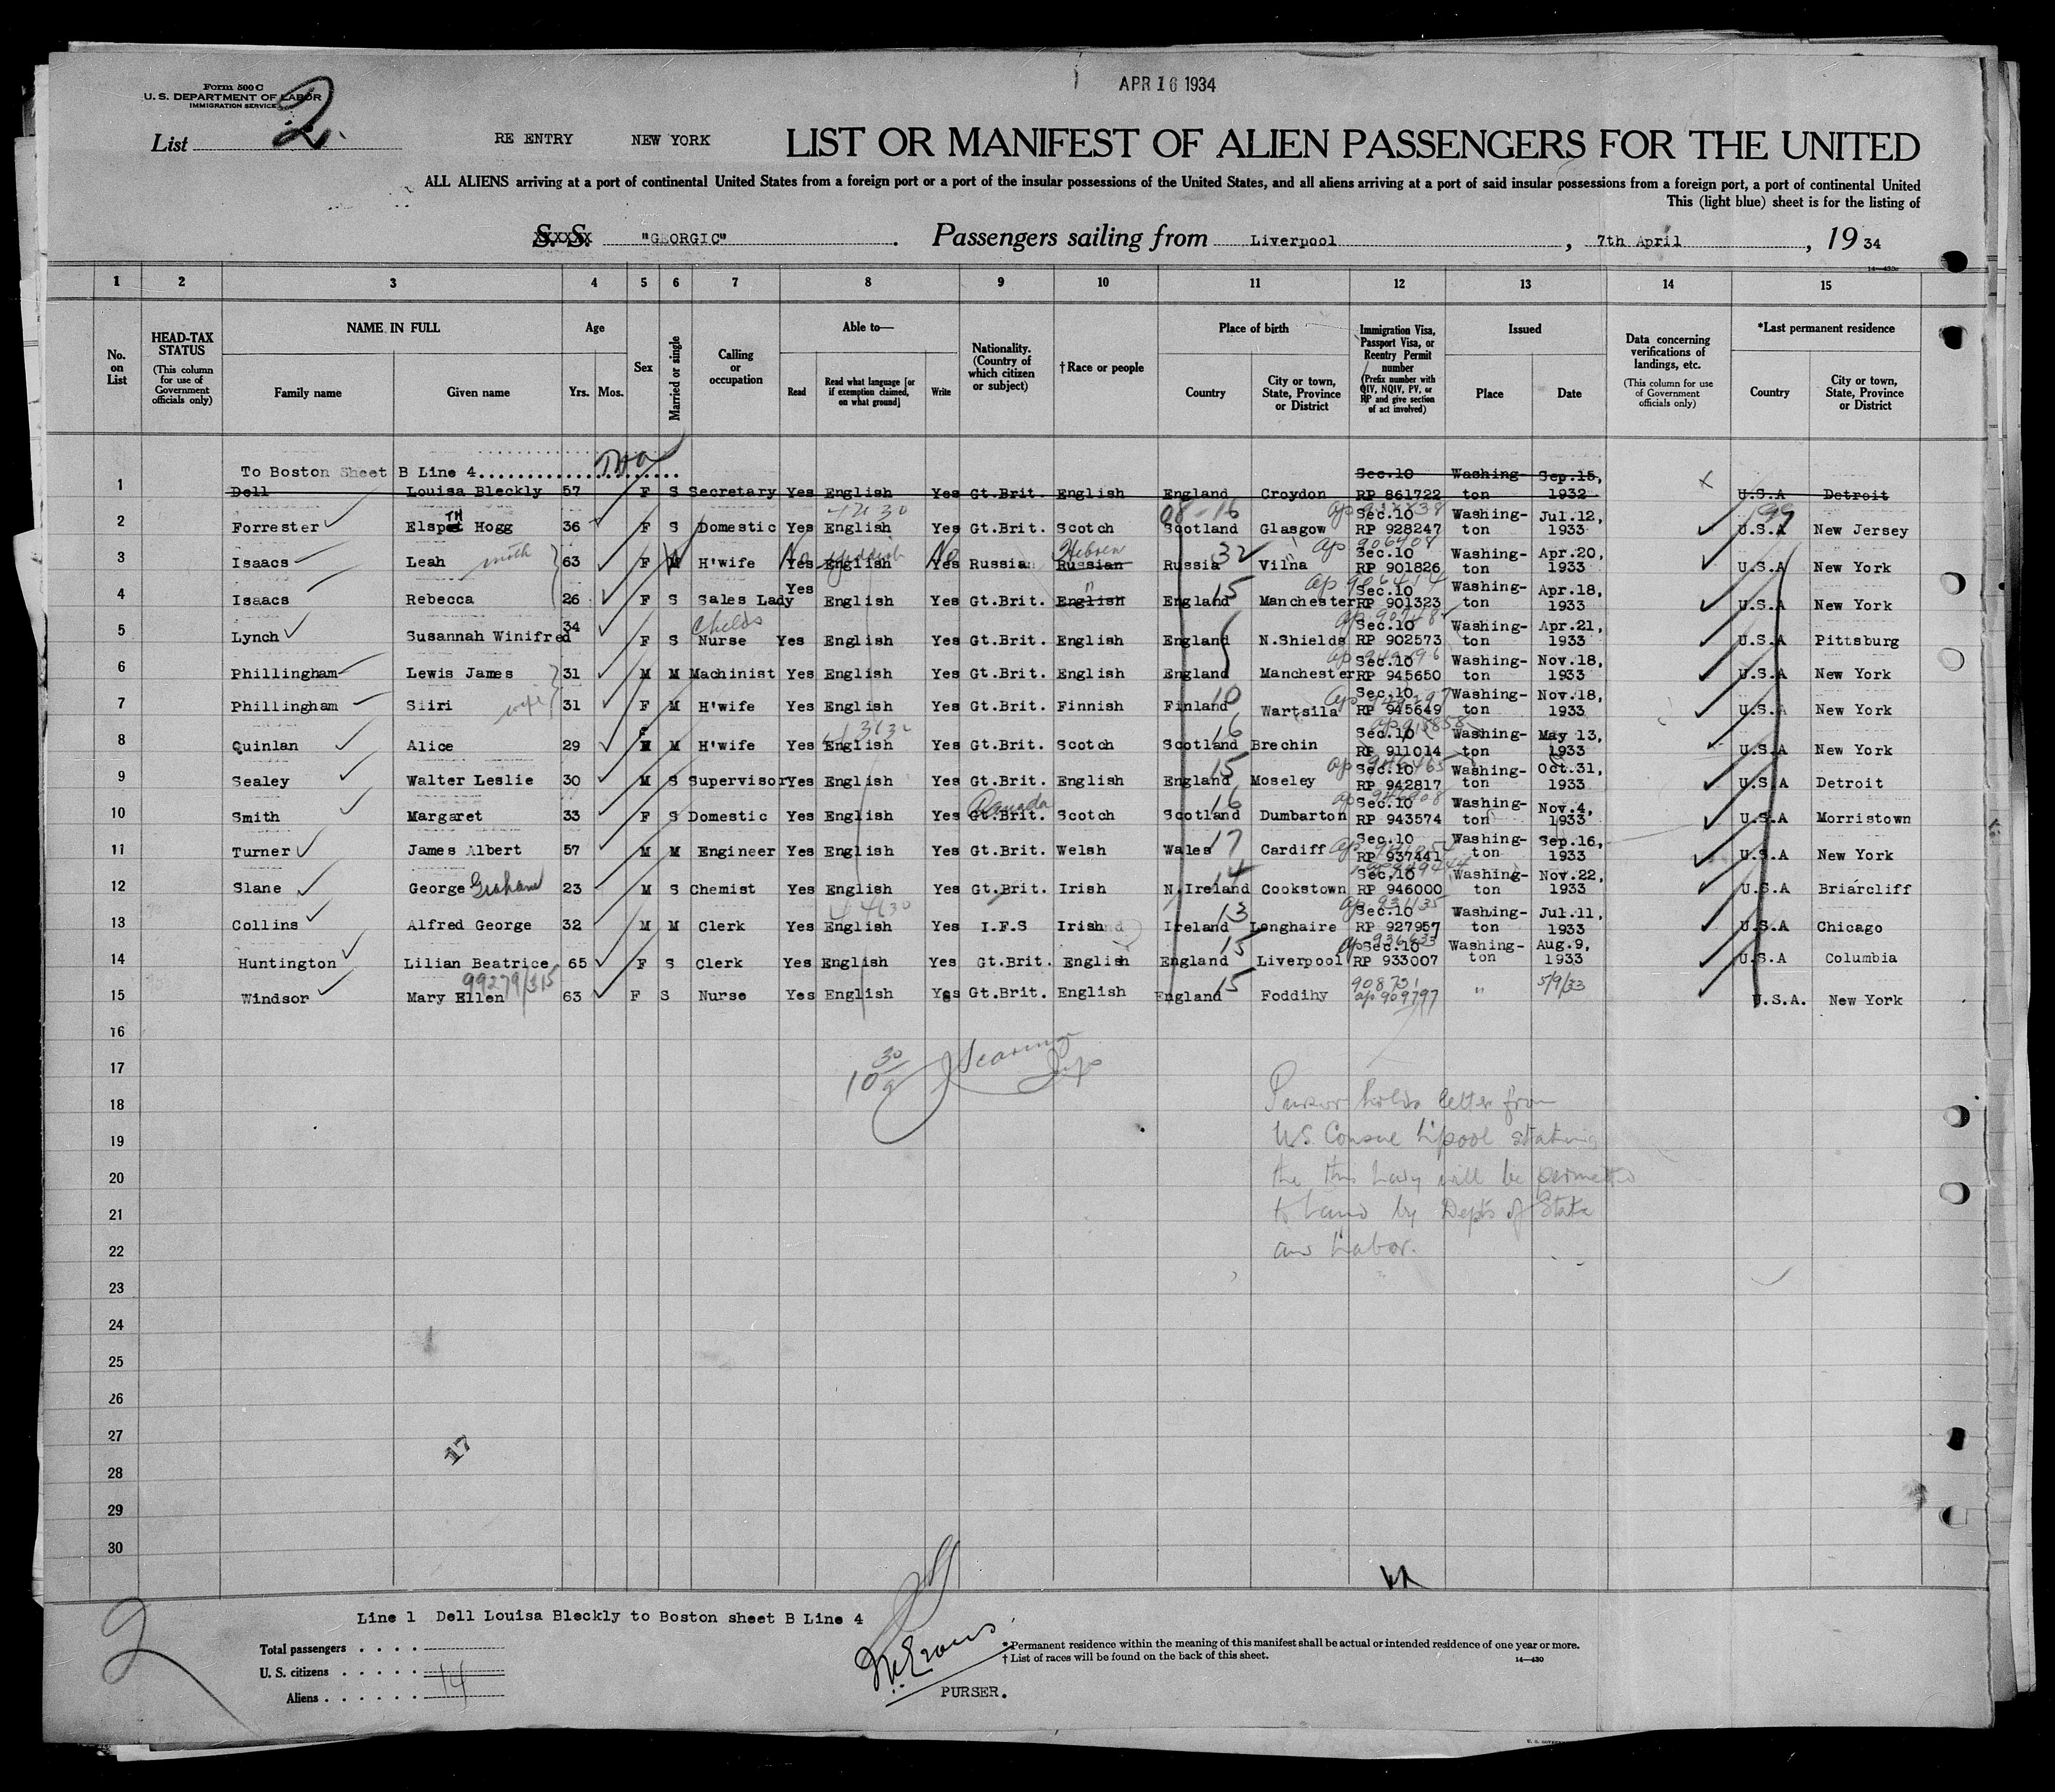 APR 16 1934
Form 500 C
U. S. DEPARTMENT OF LABOR
IMMIGRATION SERVICE
List 2.
RE ENTRY NEW YORK LIST OR MANIFEST OF ALIEN PASSENGERS FOR THE UNITED
ALL ALIENS arriving at a port of continental United States from a foreign port or a port of the insular possessions of the United States, and all aliens arriving at a port of said insular possessions from a foreign port, a port of continental United
This (light blue) sheet is for the listing of
S. S. "GEORGIC" . Passengers sailing from Liverpool , 7th April , 19 34
1 2 3 4 5 6 7 8 9 10 11 12 13 14 15
No. on List
HEAD-TAX STATUS
(This column for use of Government officials only)
NAME IN FULL
Family name Given name
Age
Yrs. Mos.
Sex
Married or single
Calling or occupation
Able to—
Read Read what language [or if exemption claimed, on what ground] Write
Nationality. (Country of which citizen or subject)
†Race or people
Place of birth
Country City or town, State, Province or District
Immigration Visa, Passport Visa, or Reentry Permit number
(Prefix number with QIV, NQIV, PV, or RP and give section of act involved)
Issued
Place Date
Data concerning verifications of landings, etc.
(This column for use of Government officials only)
*Last permanent residence
Country City or town, State, Province or District
To Boston Sheet B Line 4
1 Dell Louisa Bleckly 57 F S Secretary Yes English Yes Gt.Brit. English England Croydon Sec.10 RP 861722 Washington Sep.15, 1932 U.S.A Detroit
2 Forrester ElspeTH Hogg 36 F S Domestic Yes English Yes Gt.Brit. Scotch Scotland Glasgow Sec.10 RP 928247 Washing-ton Jul.12, 1933 U.S.A New Jersey
3 Isaacs Leah moth 63 F M H'wife Yes No English Yiddish Yes No Russia Russian Hebrew Russia 32 Vilna Sec.10 RP 901826 ap 906908 Washing-ton Apr.20, 1933 U.S.A New York
4 Isaacs Rebecca 26 F S Sales Lady Yes English Yes Gt.Brit. English " England 15 Manchester Sec.10 RP 901323 Washing-ton Apr.18, 1933 U.S.A New York
5 Lynch Susannah Winifred 34 F S Childs Nurse Yes English Yes Gt.Brit. English England N.Shields Sec.10 RP 902573 Washing-ton Apr.21, 1933 U.S.A Pittsburg
6 Phillingham Lewis James 31 M M Machinist Yes English Yes Gt.Brit. English England Manchester Sec.10 RP 945650 Washing-ton Nov.18, 1933 U.S.A New York
7 Phillingham Siiri wife 31 F M H'wife Yes English Yes Gt.Brit. Finnish Finland 10 Wartsila Sec.10 RP 945649 Washing-ton Nov.18, 1933 U.S.A New York
8 Quinlan Alice 29 F M H'wife Yes English Yes Gt.Brit. Scotch Scotland 16 Brechin Sec.10 RP 911014 ap 915858 Washing-ton May 13, 1933 U.S.A New York
9 Sealey Walter Leslie 30 M S Supervisor Yes English Yes Gt.Brit. English England 15 Moseley Sec.10 RP 942817 ap 946465 Washing-ton Oct.31, 1933 U.S.A Detroit
10 Smith Margaret 33 F S Domestic Yes English Yes Gt.Brit. Canada Scotch Scotland 16 Dumbarton Sec.10 RP 943574 Washing-ton Nov.4, 1933 U.S.A Morristown
11 Turner James Albert 57 M M Engineer Yes English Yes Gt.Brit. Welsh Wales 17 Cardiff Sec.10 RP 937441 Washing-ton Sep.16, 1933 U.S.A New York
12 Slane George Graham 23 M S Chemist Yes English Yes Gt.Brit. Irish N.Ireland 14 Cookstown Sec.10 RP 946000 Washing-ton Nov.22, 1933 U.S.A Briarcliff
13 Collins Alfred George 32 M M Clerk Yes English Yes I.F.S Irish Ireland 13 Longhaire Sec.10 RP 927957 ap 931135 Washing-ton Jul.11, 1933 U.S.A Chicago
14 Huntington Lilian Beatrice 65 F S Clerk Yes English Yes Gt.Brit. English England 15 Liverpool Sec.10 RP 933007 ap 936633 Washing-ton Aug.9, 1933 U.S.A Columbia
99279/315
15 Windsor Mary Ellen 63 F S Nurse Yes English Yes Gt.Brit. English England 15 Foddihy 908731 ap 909797 " 5/9/33 U.S.A. New York
16
17
18
19
20
21
22
23
24
25
26
27
28
29
30
Purser holds letter from
U.S. Consul L'pool stating
the this lady will be permitted
to land by Depts of State
and Labor.
17
Line 1 Dell Louisa Bleckly to Boston sheet B Line 4
2
Total passengers
U. S. citizens
Aliens 14
Evans
PURSER.
*Permanent residence within the meaning of this manifest shall be actual or intended residence of one year or more.
† List of races will be found on the back of this sheet.
14—430